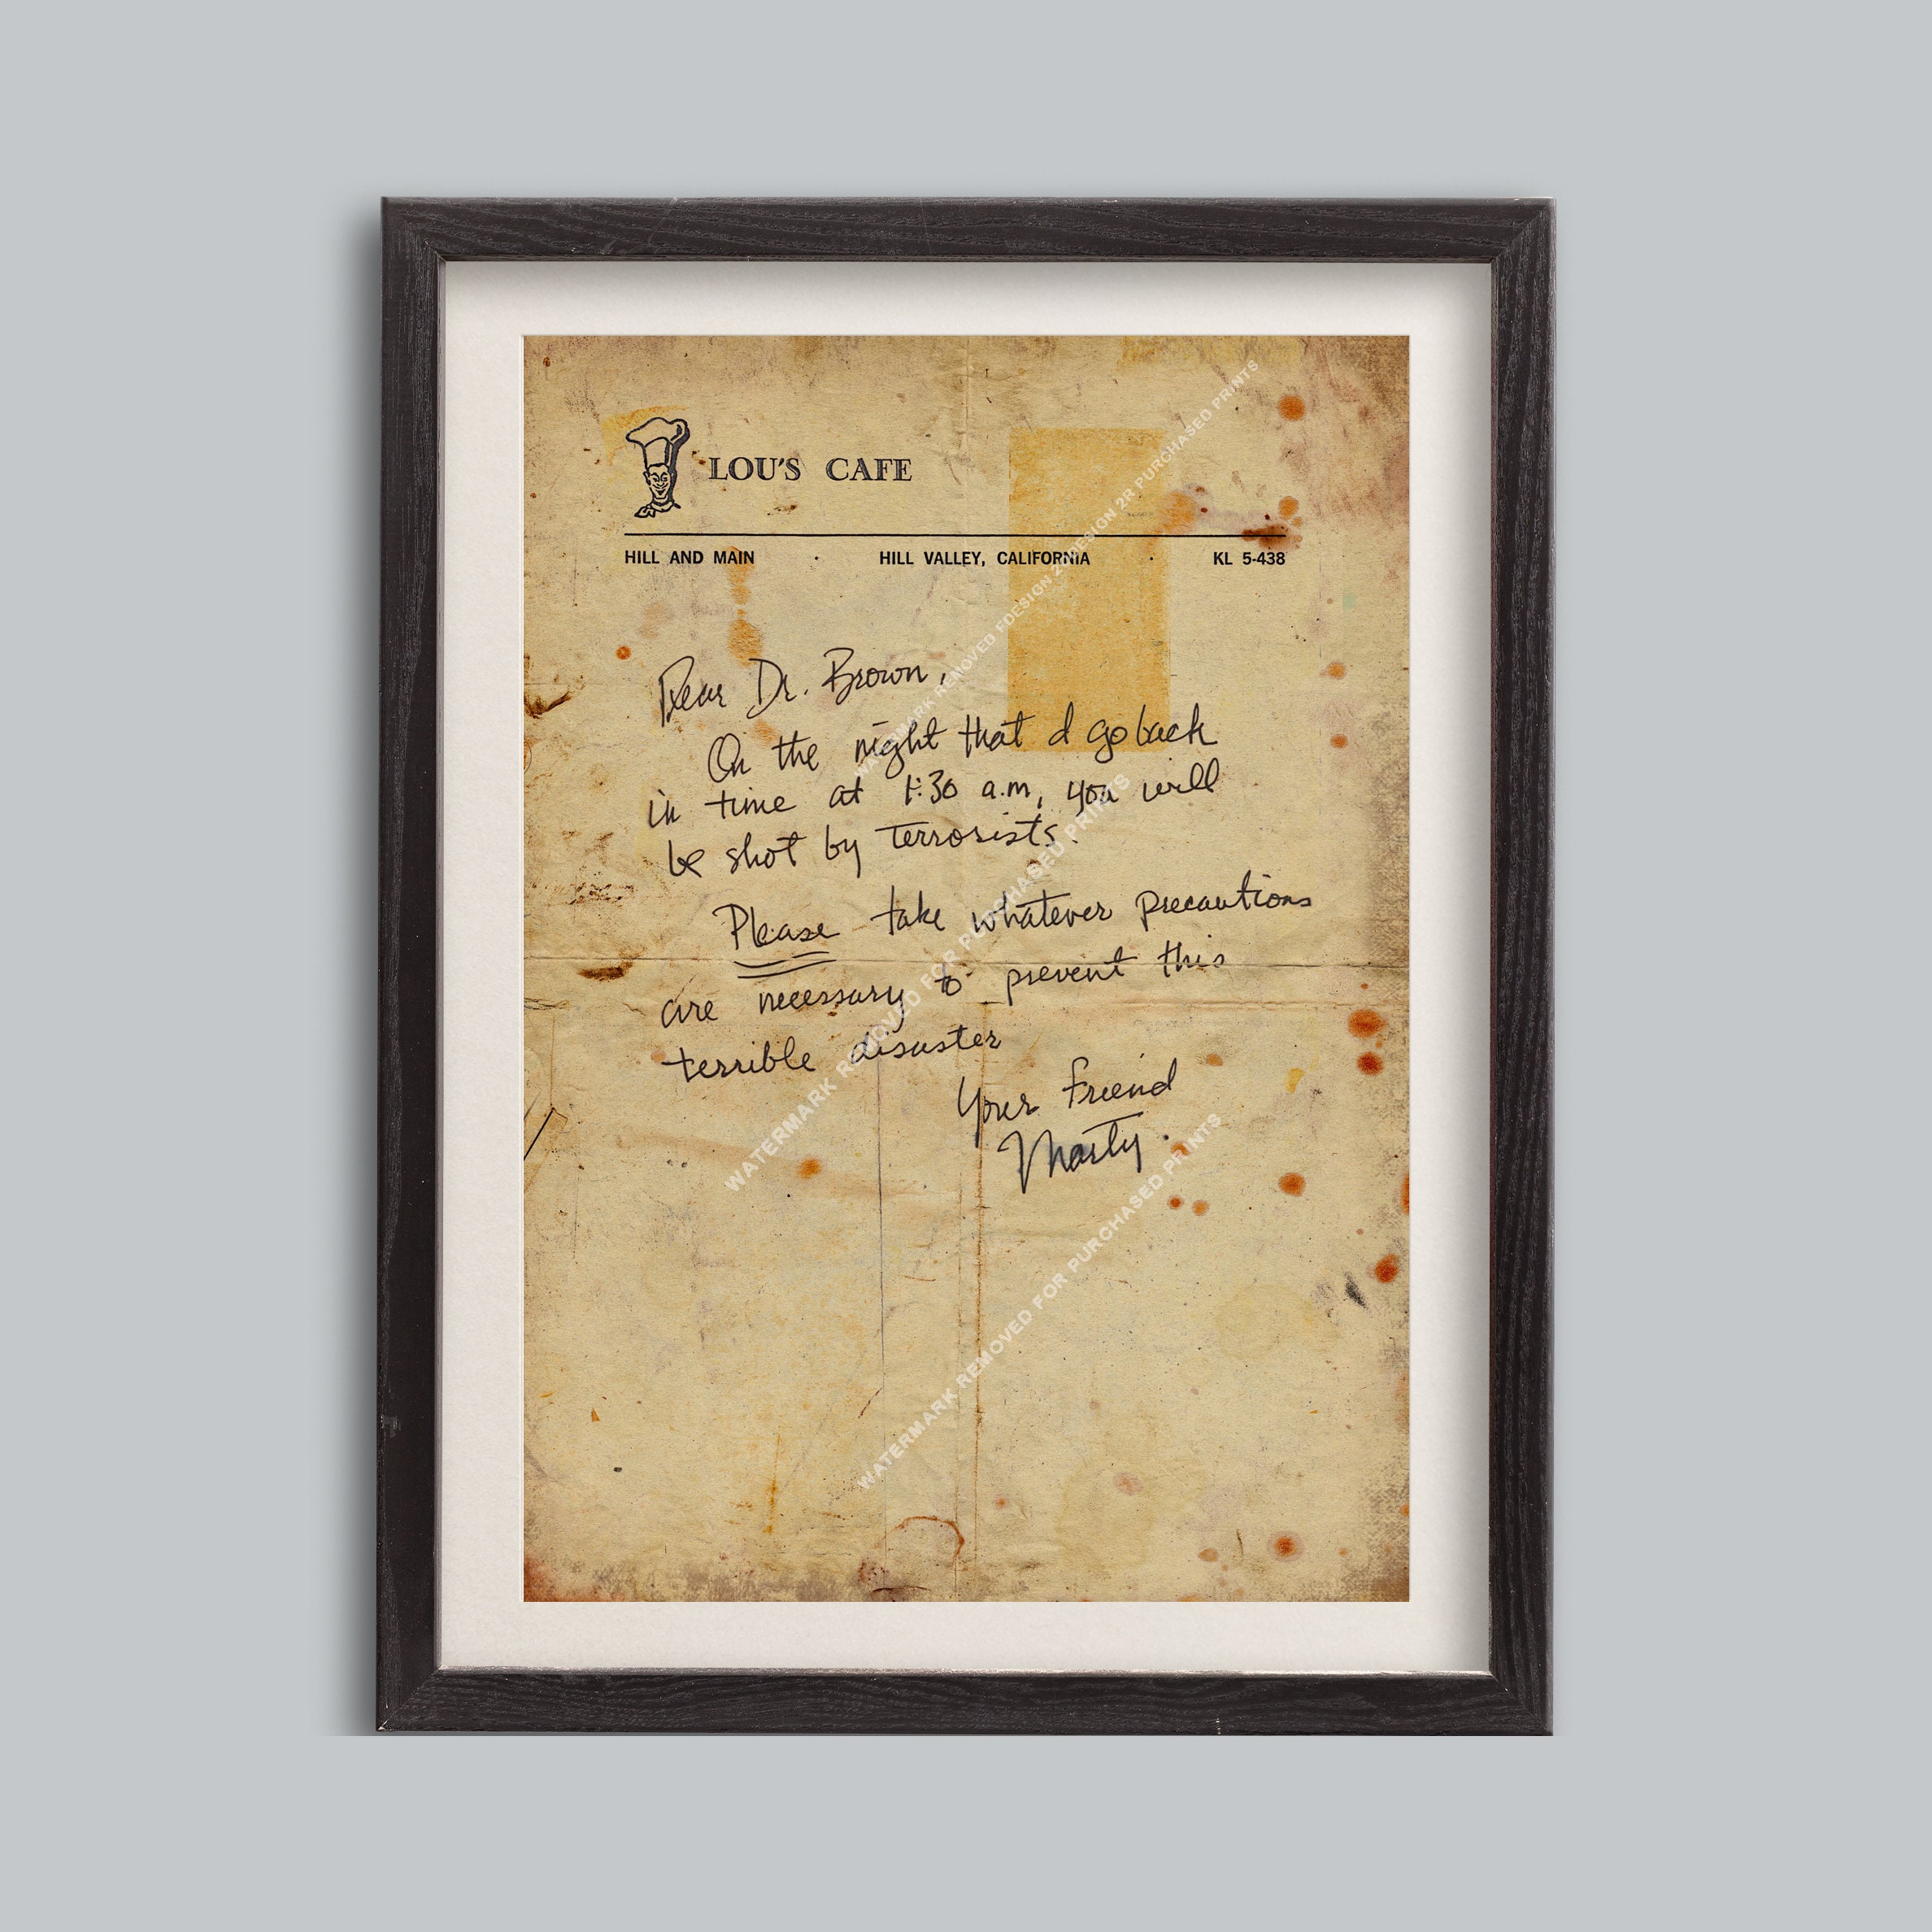 LOU'S CAFE
HILL AND MAIN · HILL VALLEY, CALIFORNIA · KL 5-438
Dear Dr. Brown,
On the night that I go back
in time at 1:30 a.m, you will
be shot by terrorists.
Please take whatever precautions
are necessary to prevent this
terrible disaster
Your friend
Marty.
WATERMARK REMOVED FDESIGN 2R DESIGN 2R PURCHASED PRINTS
WATERMARK REMOVED FOR PURCHASED PRINTS
WATERMARK REMOVED FOR PURCHASED PRINTS